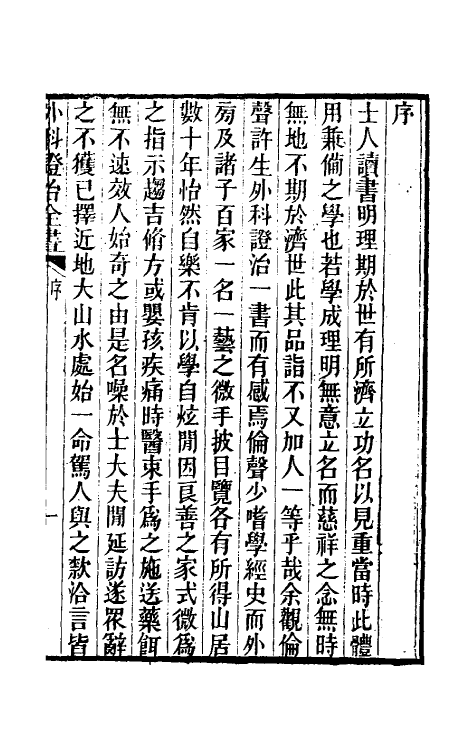 序
士人讀書明理期於世有所濟立功名以見重當時此體
用兼備之學也若學成理明無意立名而慈祥之念無時
無地不期於濟世此其品詣不又加人一等乎哉余觀倫
聲許生外科證治一書而有感焉倫聲少嗜學經史而外
旁及諸子百家一名一藝之微手披目覽各有所得山居
數十年怡然自樂不肯以學自炫閒因良善之家式微爲
之指示趨吉脩方或嬰孩疾痛時醫束手爲之施送藥餌
無不速效人始奇之由是名噪於士大夫閒延訪遂衆辭
之不獲已擇近地大山水處始一命駕人與之欵洽言皆
外科證治全書 序 一